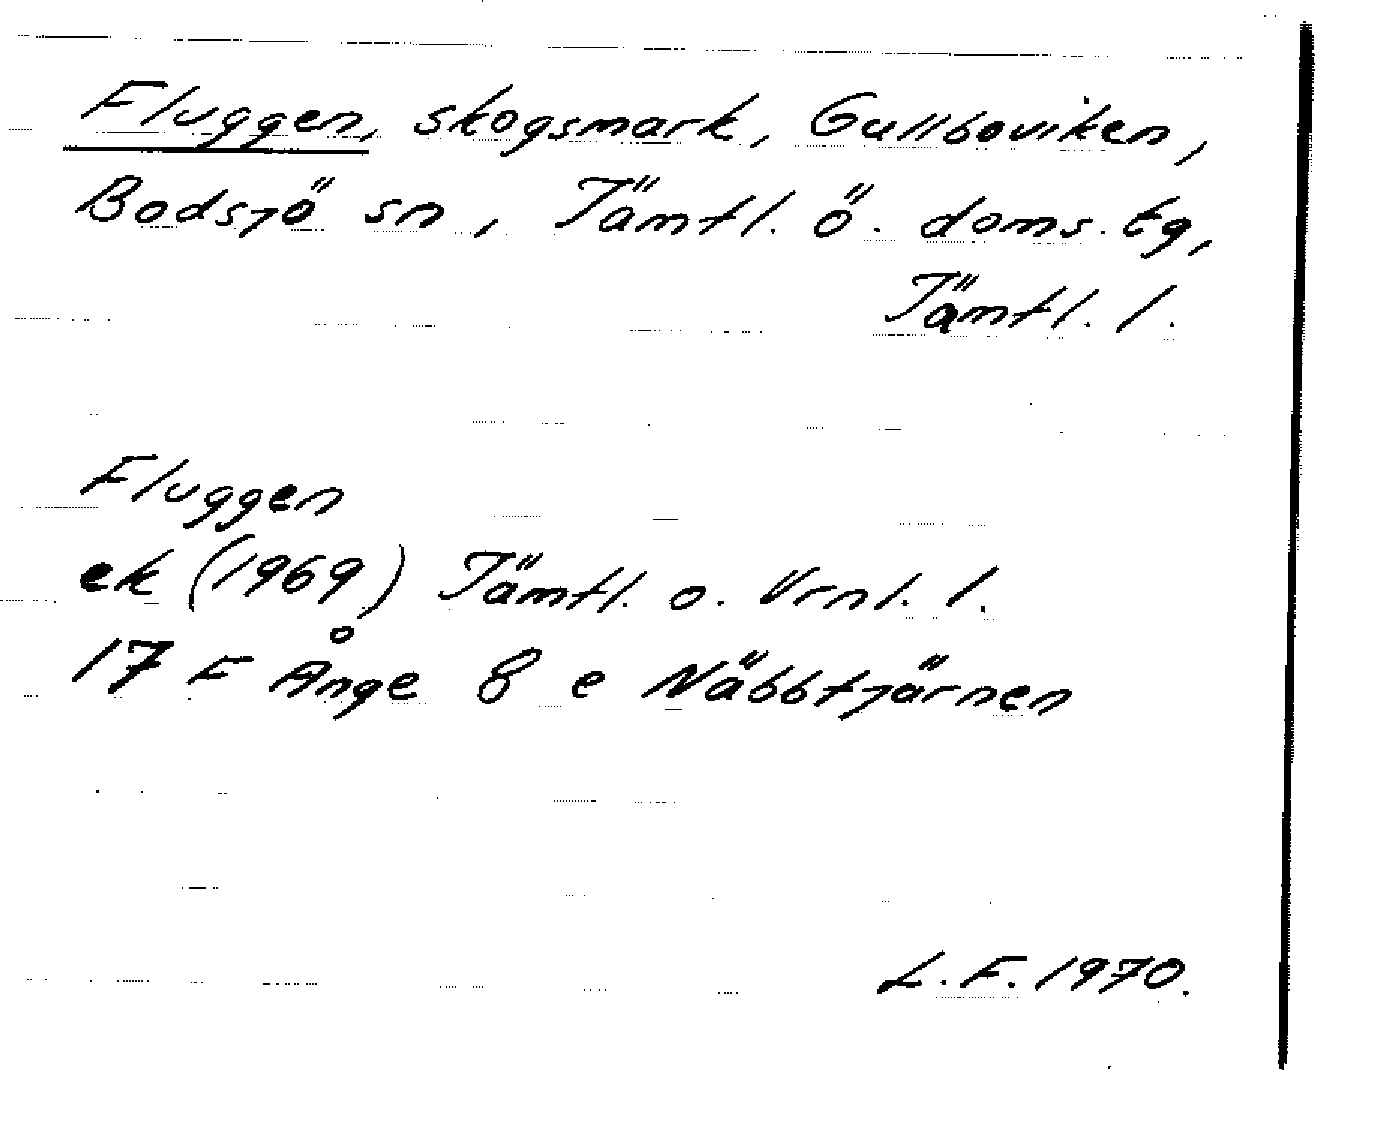 Fluggen, skogsmark, Gullboviken,
Bodsjö sn, Jämtl. ö. doms. tg,
Jämtl. l.
Fluggen
ek (1969) Jämtl. o. Vrnl. l.
17 F Ånge 8 e Näbbtjärnen
L.F. 1970.